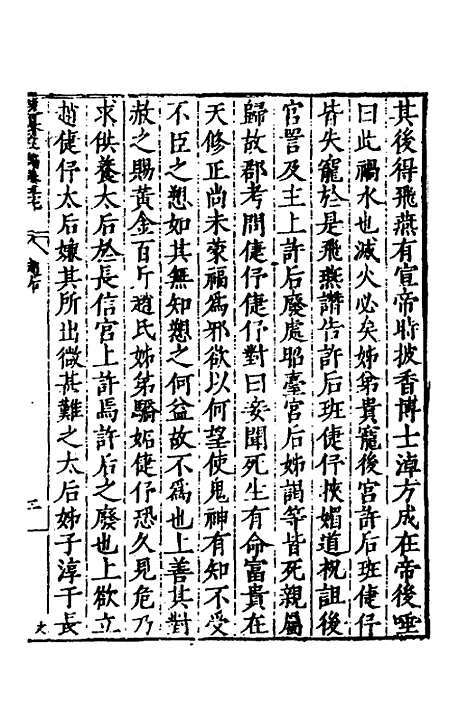 其後得飛燕有宣帝時披香博士淖方成在帝後唾
曰此禍水也滅火必矣姊弟貴寵後宮許后班倢伃
皆失寵於是飛燕讚告許后班倢伃挾媚道祝詛後
宮詈及主上許后廢處昭臺宮后姊謁等皆死親屬
歸故郡考問倢伃倢伃對曰妾聞死生有命富貴在
天修正尚未蒙福為邪欲以何望使鬼神有知不受
不臣之愬如其無知愬之何益故不為也上善其對
赦之賜黃金百斤趙氏姊弟驕妬倢伃恐久見危乃
求供養太后於長信宮上許焉許后之廢也上欲立
趙倢伃太后嫌其所出微甚難之太后姊子淳于長